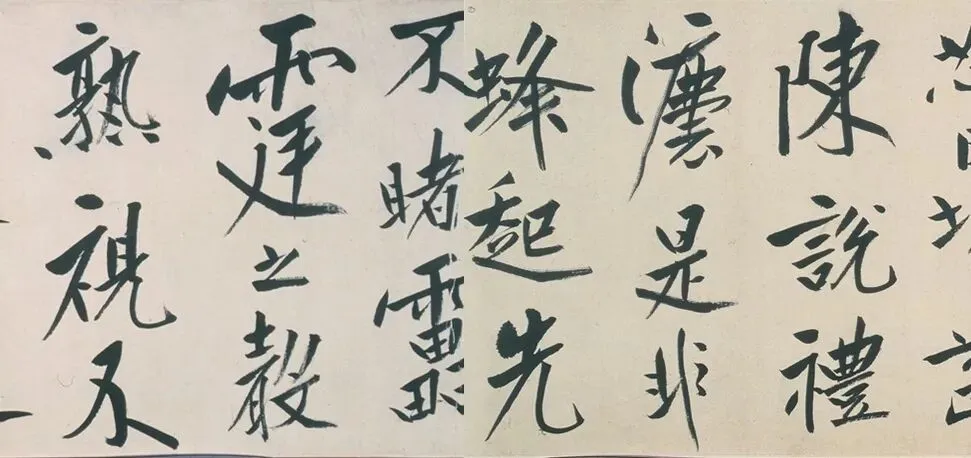 陳說禮
灋是非
蜂起先
不睹靁
霆之聲
熟視不